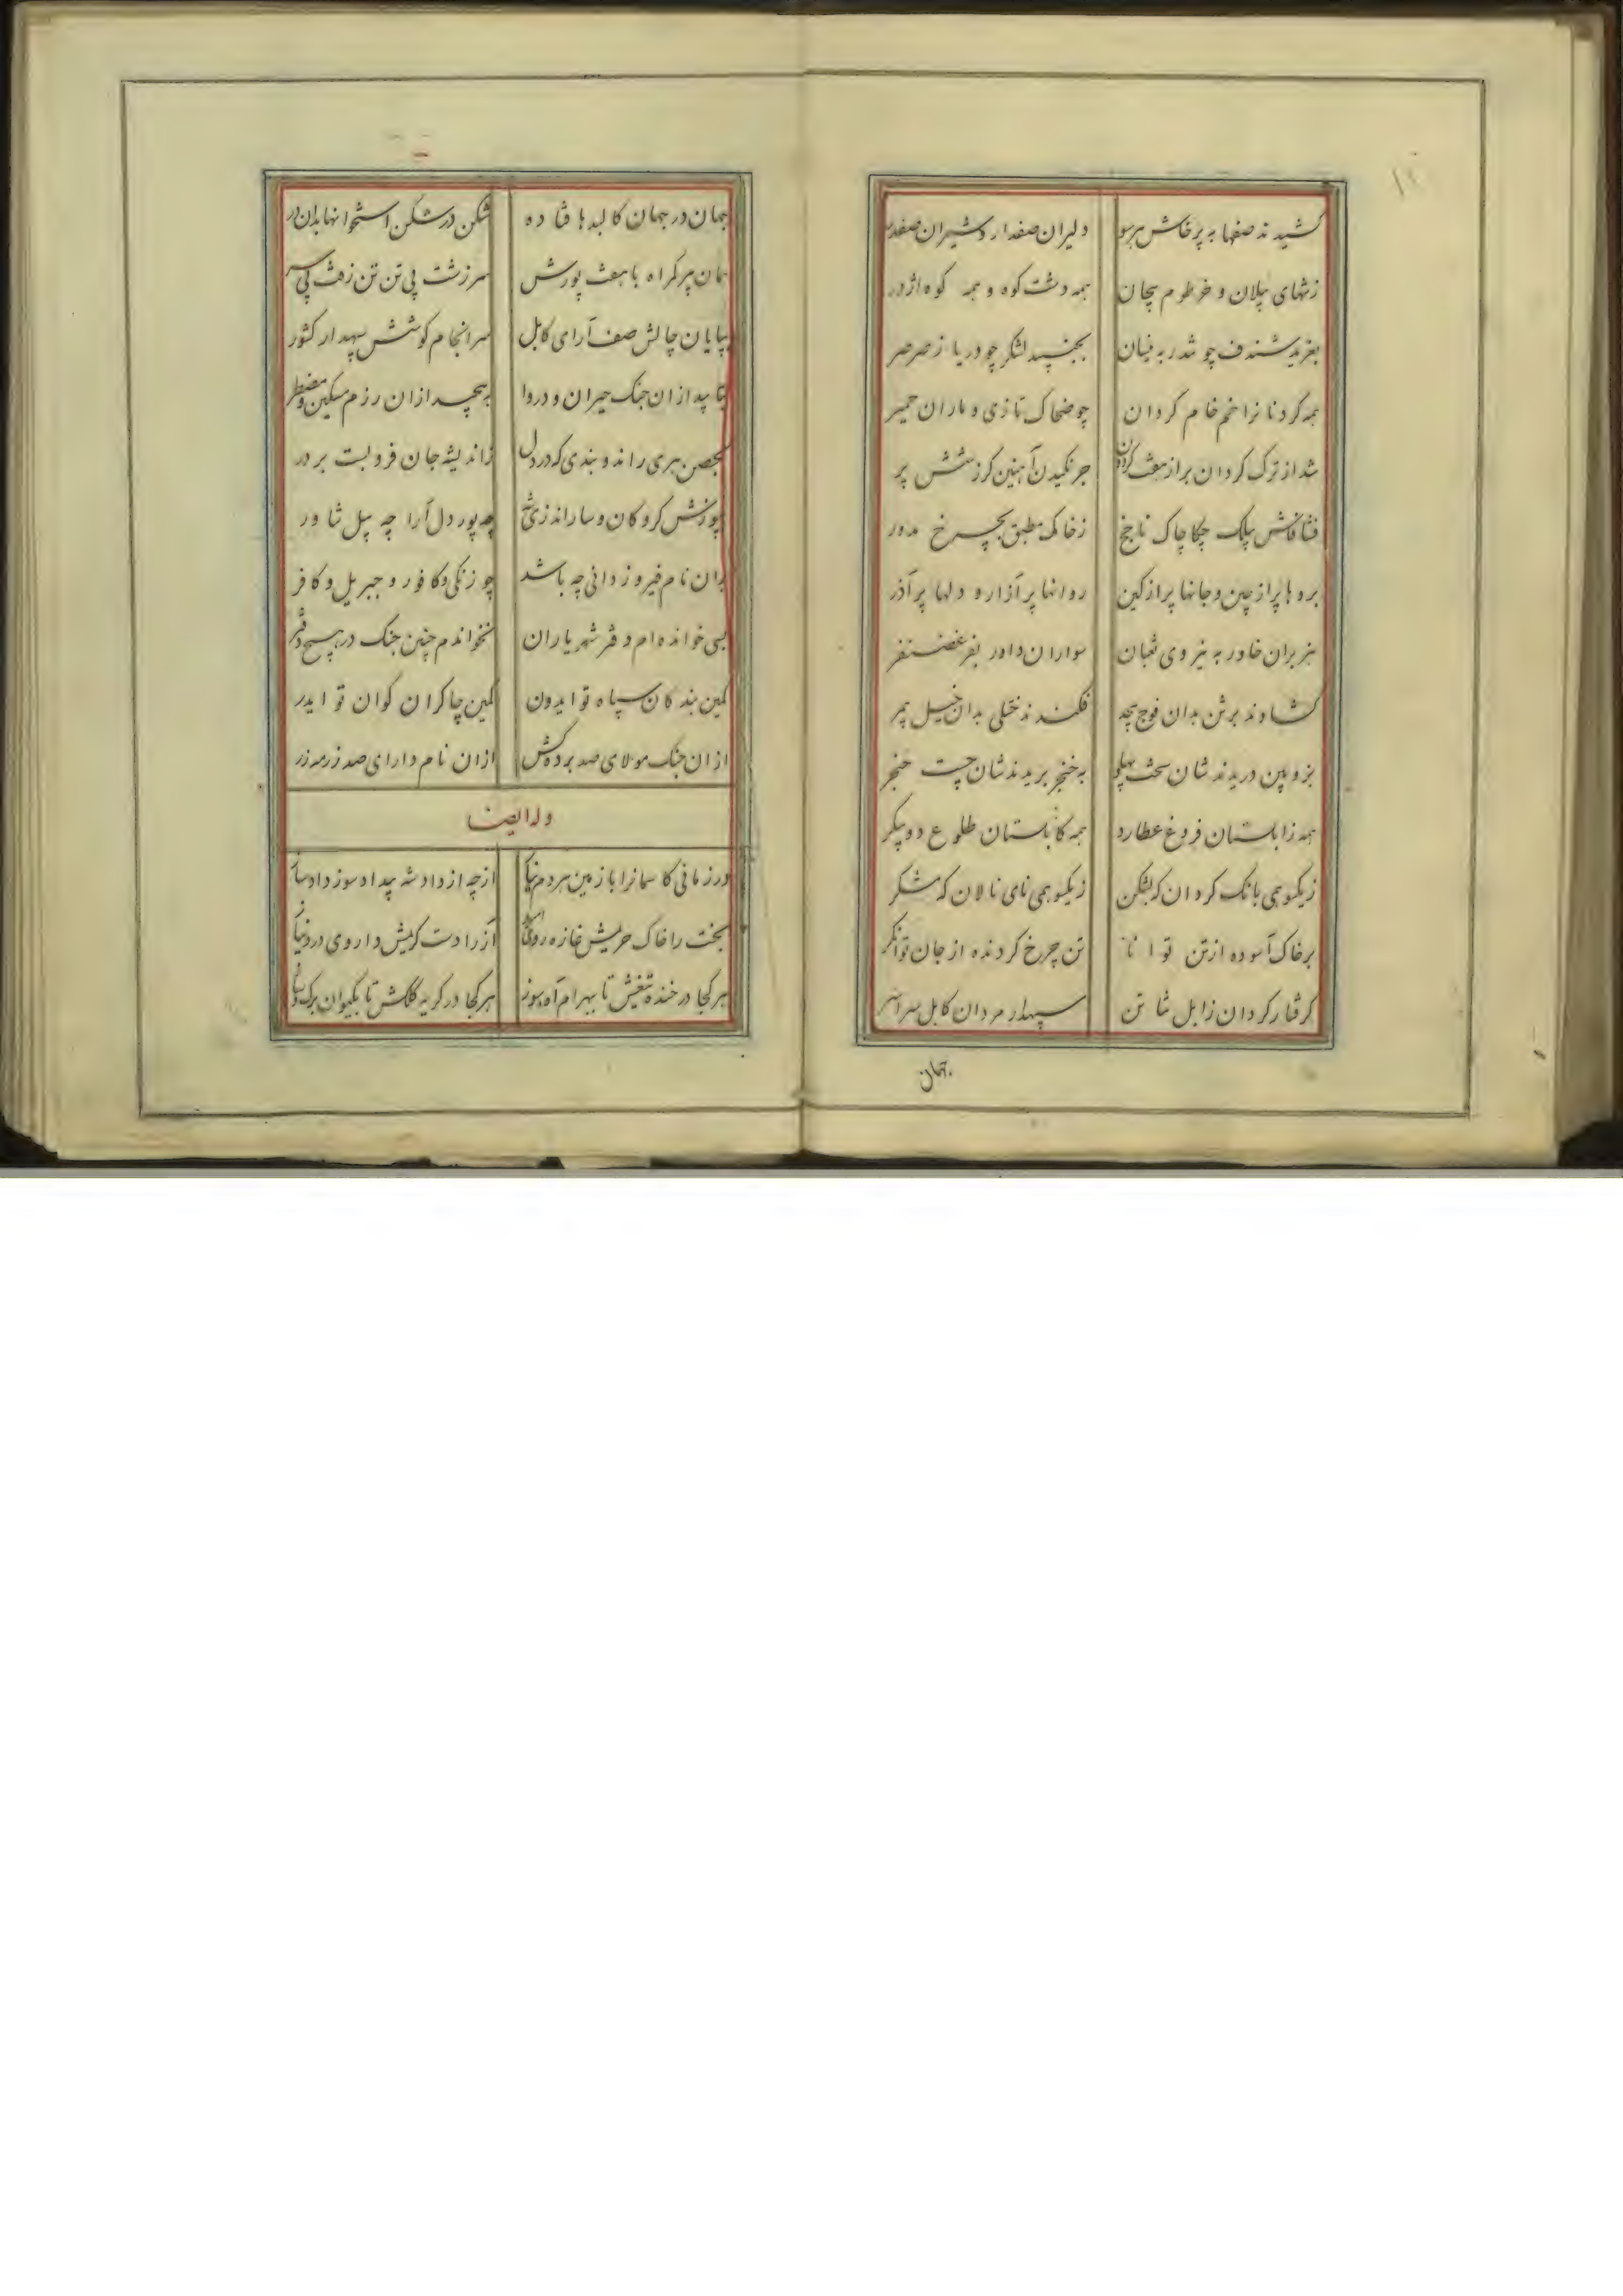 کشیدند صفها به پرخاش هر سو دلیران صفدار و شیران صفدر
زتنهای پیلان و خرطوم پیچان همه دشت کوه و همه کوه اژدر
بغرید شندف چو تندر به نیسان بجنبید لشکر چو دریا ز صرصر
همه گردنانرا خم خام گردان چو ضحاک تازی و ماران حمیر
شد از ترک گردان پر از هفت گردون جرنگیدن آهنین گرز شش پر
فشافاش پیلک چکاچاک ناچخ ز خاک مطبق بچرخ مدور
بروها پر از چین و جانها پر از کین روانها پر آزار و دلها پر آذر
هزبران خاور به نیروی ثعبان سواران داور بفر غضنفر
گشادند برشن بدان فوج بیحد فکندند ختلی بدان خیل بیمر
بزوپین دریدند شان سخت پهلو به خنجر بریدند شان چست حنجر
همه زابلستان فروغ عطارد همه کابلستان طلوع دوپیکر
زیکسو همی بانک گردان که بشکن زیکسو همی نای نالان که مشکر
بر خاک آسوده از تن توانا تن چرخ گردنده از جان توانگر
گرفتار گردان زابل تن سپهدار مردان کابل سراسر
جهان در جهان کالبدها فتاده شکن در شکن استخوانها بدان در
همان پیر گمراه با هفت پورش سر زشت پی تن تن زفت پی سر
بپایان چالش صف آرای کابل سرانجام کوشش سپهدار کشور
بتابید از ان جنگ حیران و دروا به پیچید ازان رزم مسکین و مضطر
بحصن هری راند و بندی که در دل زاندیشه جان فروبست بر در
چه پور دل آرا چه پیل
بدان نام فیروز دانی چه باشد چو زنگی و کافور و جبریل و کافر
بسی خوانده ام دفتر شهریاران نخواندم چنین جنگ در هیچ دفتر
کمین بندگان سپاه تو ایدون کمین چاکران گوان تو ایدر
از ان جنگ مولای صد برده کش ازان نام دارای صد زر
وله ایضا
در زمانی کاسمانرا با زمین از چه از داد شه بیداد سوز داد
بخت را خاک حریمش غازه روی آز را دست کریمش داروی درد
هر کجا در خنده تیغش تا ببهرام آه سوز هر کجا در گریه کلکش تا بکیوان
جهان